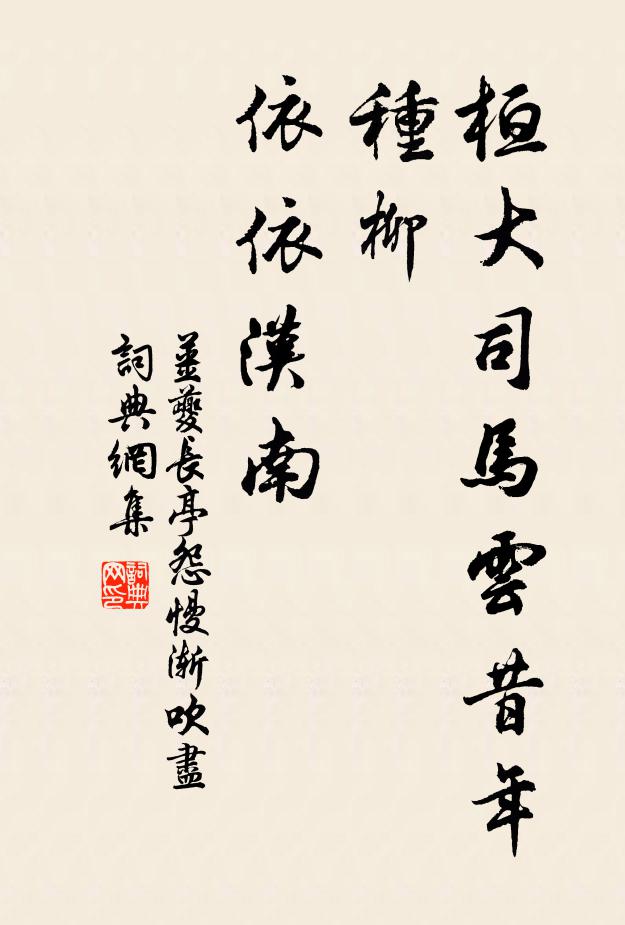 桓大司馬雲昔年
種柳
依依漢南
姜夔長亭怨慢漸吹盡
詞典網集
詞典网印